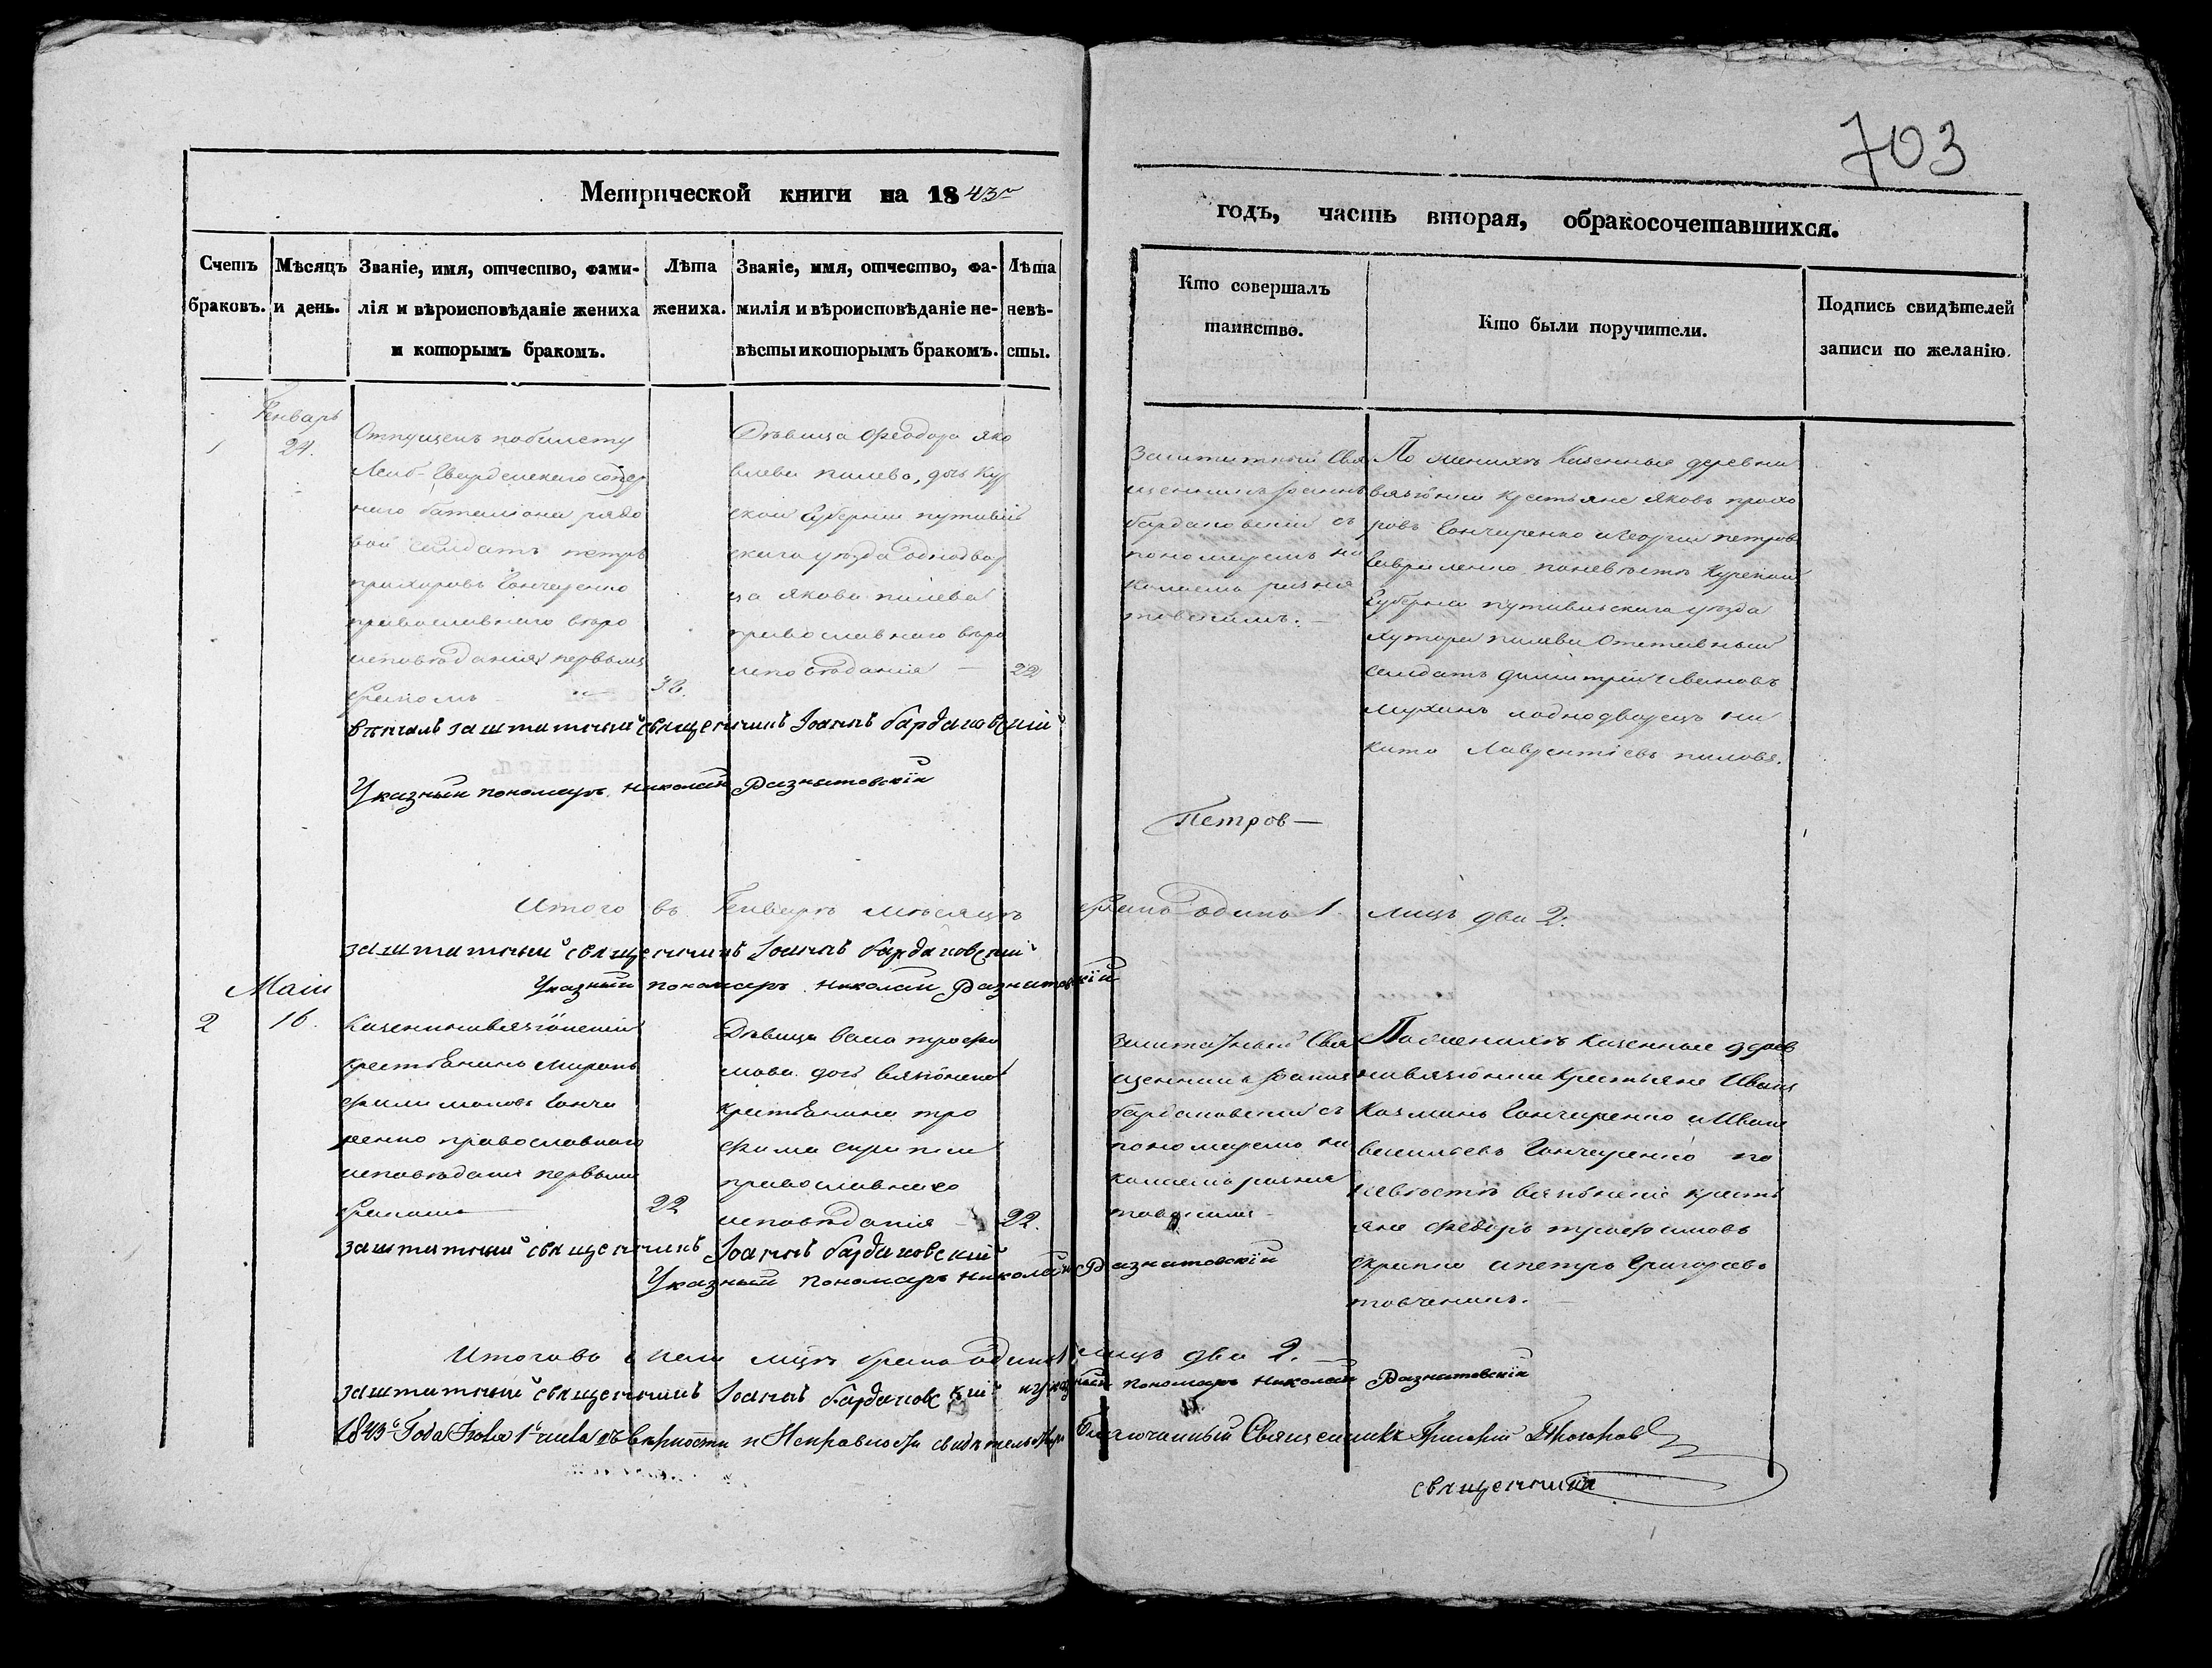 703
Метрической книги на 1843 г
годъ, часть вторая, обракосочетавшихся.
Счетъ
браковъ.
Мѣсяцъ
и день.
Званіе, имя, отчество, фами-
лія и вѣроисповѣданіе жениха
и которымъ бракомъ.
Лѣта
жениха.
Званіе, имя, отчество, фа-
милія и вѣроисповѣданіе не-
вѣсты и которымъ бракомъ.
Лѣта
невѣ-
сты.
Кто совершалъ
таинство.
Кто были поручители.
Подпись свидѣтелей
записи по желанію.
Генварь
1
24.
Отпущенъ побилету
Лейб-Гвардейскаго
наго баталіона рядо
вой солдатъ петръ
прохоровъ Гончаренко
православнаго вѣро
исповѣданія первымъ
бракомъ
38.
Дѣвица Феодора Яко
влева пилева, дочь Кур
ской Губерніи путивль
скаго уѣзда однодвор
ца Якова пилева
православнаго вѣро
исповѣданія —
22
Заштатный Свя
щенникъ Іоаннъ
бардаковскій съ
пономаремъ Ни
колаемъ разна
товскимъ. —
По женихѣ Казенные деревни
вязёнки крестьяне Яковъ прохо
ровъ Гончаренко и Георгій петровъ
Гавриленко поневѣстѣ Курской
Губерніи путивльскаго уѣзда
хутора пилева Отставный
солдатъ димитрій Ивановъ
Мухинъ иоднодворецъ ни
кита Лаврентіевъ пиловъ.
вѣнчалъ заштатный священникъ Іоаннъ бардаковскій
Указный пономарь Николай Разнатовскій
Петров —
Итого въ Генварѣ мѣсяцѣ бракъ одинъ 1. лицъ два 2.
заштатный священникъ Іоаннъ бардаковскій
Указный пономарь Николай Разнатовскій
Маія
2
16.
Казенный вязёнскій
крестьянинъ Миронъ
филимоновъ Гонча
ренко православнаго
исповѣданія первымъ
бракомъ —
22
Дѣвица васса трофи
мова дочь вязёнскаго
крестьянина тро
фима скрипки
православнаго
исповѣданія —
22.
Заштатный Свя
щенникъ Іоаннъ
бардаковскій съ
пономаремъ Ни
колаемъ разна
товскимъ —
По женихѣ Казенные дерев
ни вязёнки крестьяне Иванъ
Козминъ Гончаренко и Иванъ
васильевъ Гончаренко по
невѣстѣ вязёнскіе кресть
яне федоръ трофимовъ
скрипка ипетръ Григорьевъ
товченикъ. —
заштатный священникъ Іоаннъ бардаковскій
Указный пономарь Николай Разнатовскій
Итого въ маіи мцѣ бракъ одинъ 1. лицъ два 2.
заштатный священникъ Іоаннъ бардаковскій и указный пономарь Николай Разнатовскій
1843 Года Іюля 1 числа въ верности и Исправности свидѣтельствую Благочинный Священникъ Григорій
священникъ